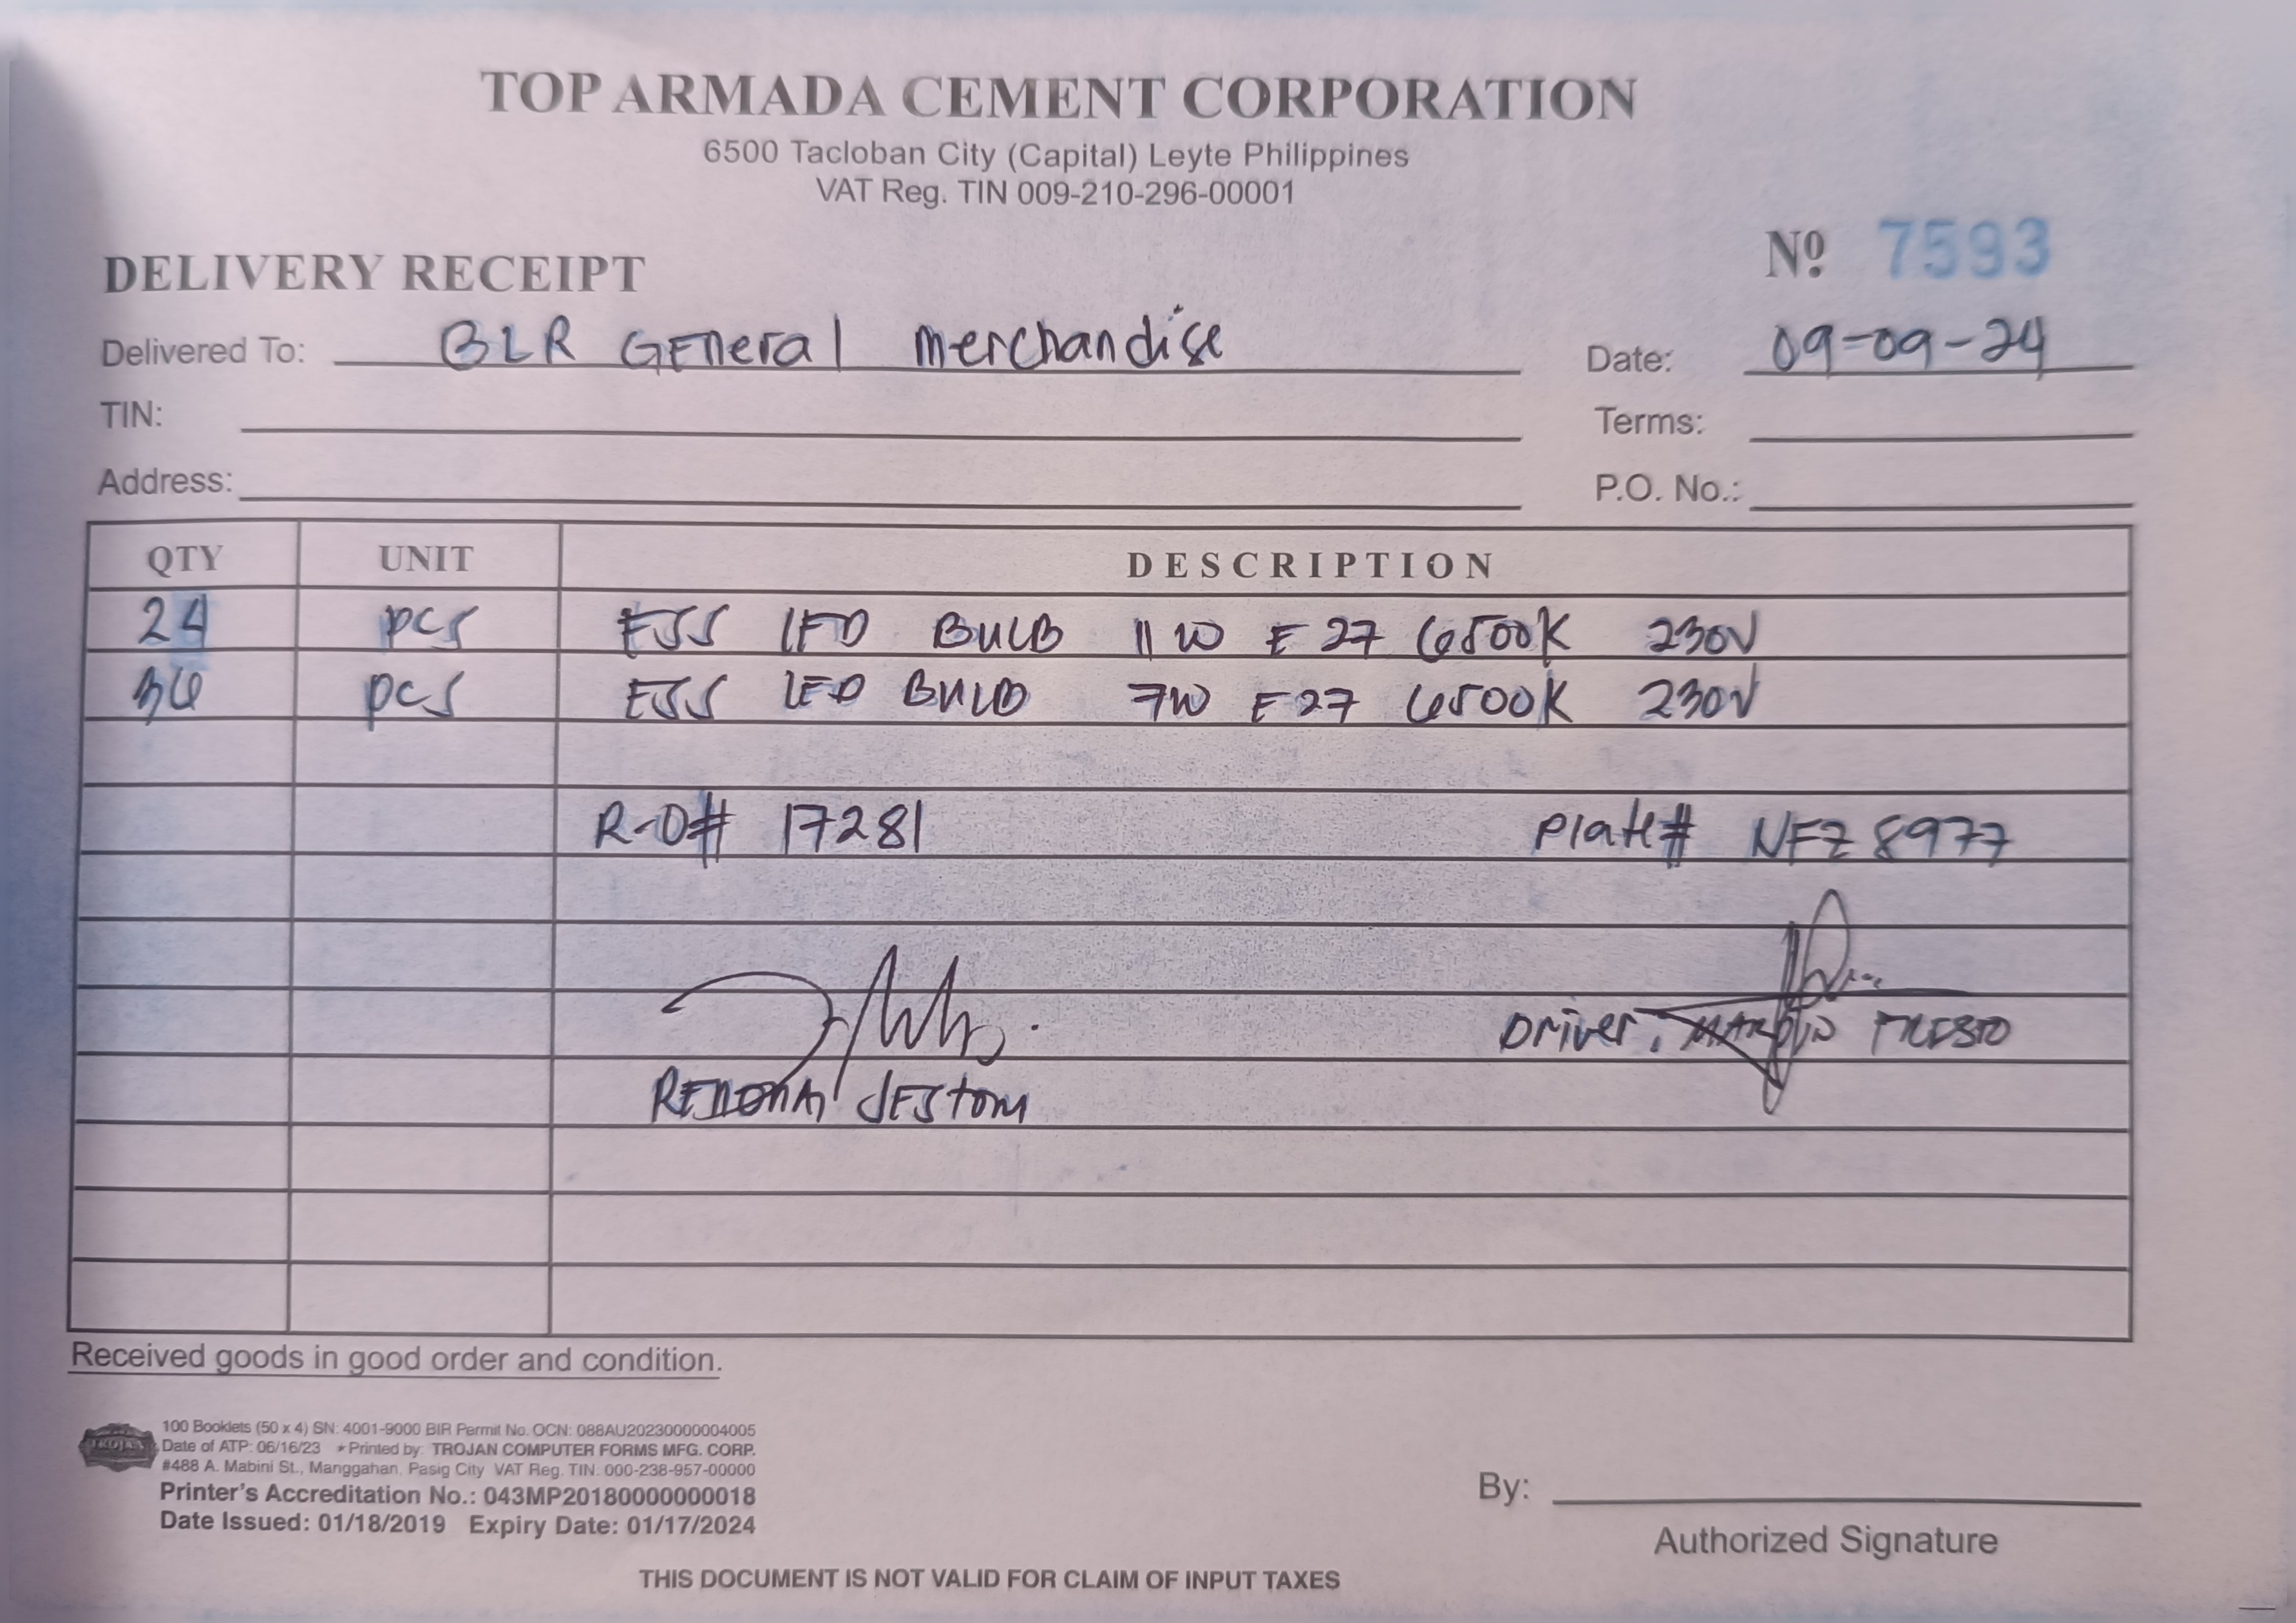 TOP ARMADA CEMENT CORPORATION
6500 Tacloban City (Capital) Leyte Philippines
VAT Reg. TIN 009-210-296-00001
DELIVERY RECEIPT
Nº 7593
Delivered To: BLR GENeral merchandise
Date: 09-09-24
TIN:
Terms:
Address:
P.O. No.:
QTY UNIT DESCRIPTION
24 pcs ESS LED BULB 11W E27 6500K 230V
36 pcs ESS LED BULB 7W E27 6500K 230V
R-O# 17281 Plate# NFZ 8977
Driver:
Received goods in good order and condition.
TROJAN
100 Booklets (50 x 4) SN: 4001-9000 BIR Permit No. OCN: 088AU20230000004005
Date of ATP: 06/16/23 ★Printed by: TROJAN COMPUTER FORMS MFG. CORP.
#488 A. Mabini St., Manggahan, Pasig City VAT Reg. TIN: 000-238-957-00000
Printer's Accreditation No.: 043MP20180000000018
Date Issued: 01/18/2019 Expiry Date: 01/17/2024
By:
Authorized Signature
THIS DOCUMENT IS NOT VALID FOR CLAIM OF INPUT TAXES